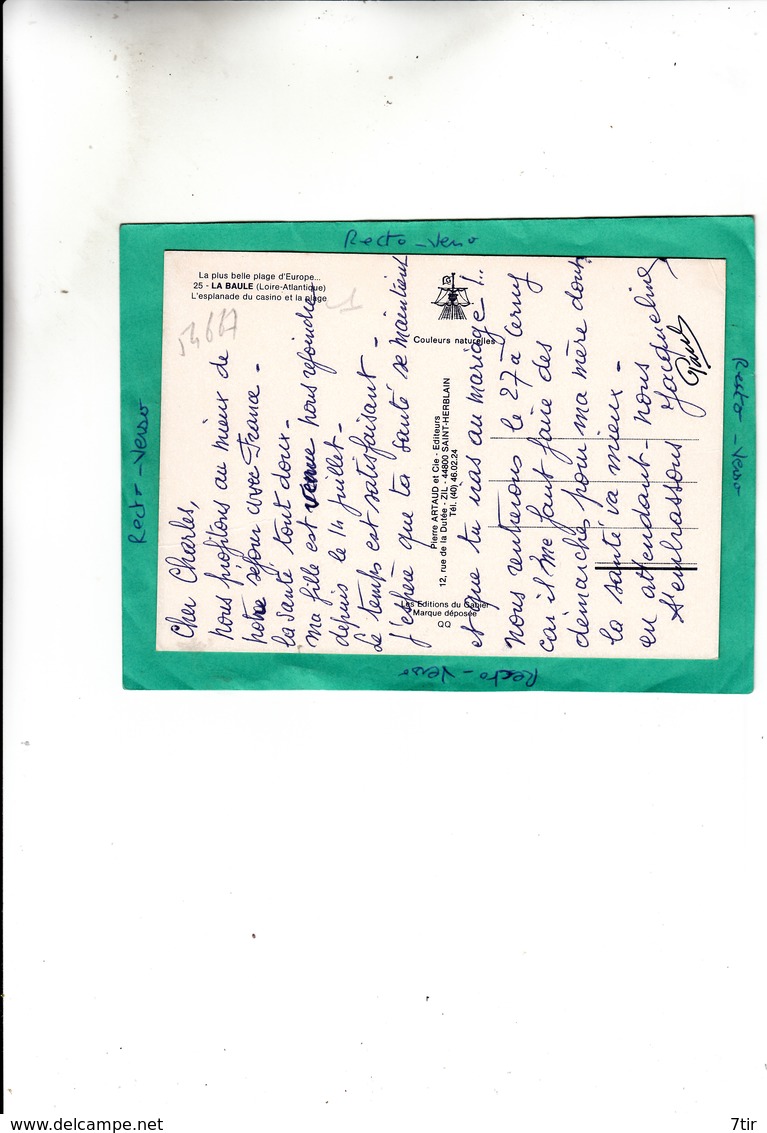 Recto - Verso
La plus belle plage d'Europe...
25 - LA BAULE (Loire-Atlantique)
L'esplanade du casino et la plage
54667
1
Couleurs naturelles
Pierre ARTAUD et Cie - Editeurs
12, rue de la Dutée - ZIL - 44800 SAINT-HERBLAIN
Tél. (40) 46.02.24
Les Editions du Gabier
Marque déposée
Cher Charles,
nous profitons au mieux de
notre séjour avec France -
la santé tout doux -
ma fille est venue nous rejoindre
depuis le 14 juillet -
Le temps est satisfaisant -
j'espère que ta santé se maintient
et que tu iras au mariage !..
Nous rentrerons le 27 à Cerny
car il me faut faire des
démarches pour ma mère dont
la santé va mieux -
en attendant - nous
t'embrassons Jacqueline
Paul
Recto - Verso
Recto - Verso
Recto - Verso
7tir
www.delcampe.net